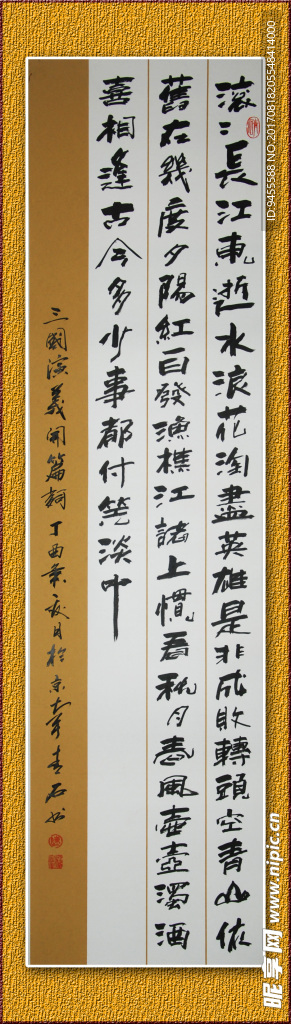 滾〻長江東逝水浪花淘盡英雄是非成敗轉頭空青山依
舊在幾度夕陽紅白發漁樵江諸上慣看秋月春風壹壺濁酒
喜相逢古今多少事都付笑淡中
三國演義開篇詞丁酉年夏月於京華青石书
ID:9455588 NO:20170818205548414000
昵享网 www.nipic.cn